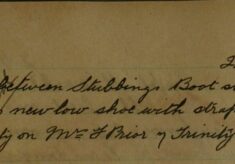 between Stubbings Boot
new low shoe with strap
on Mr F Prior 7 Trinity